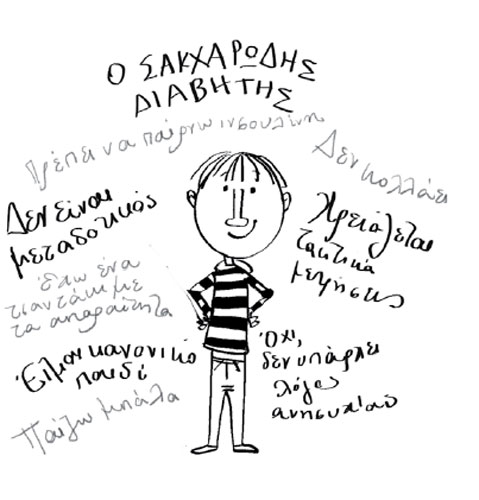 Ο ΣΑΚΧΑΡΩΔΗΣ
ΔΙΑΒΗΤΗΣ
Πρέπει να παίρνω ινσουλίνη
Δεν κολλάει
Δεν είναι
μεταδοτικός
Χρειάζεται
τακτικά
μετρήσεις
Έχω ένα
τσαντάκι με
τα απαραίτητα
Είμαι κανονικό
παιδί
Όχι,
δεν υπάρχει
λόγος
ανησυχίας
Παίζω μπάλα